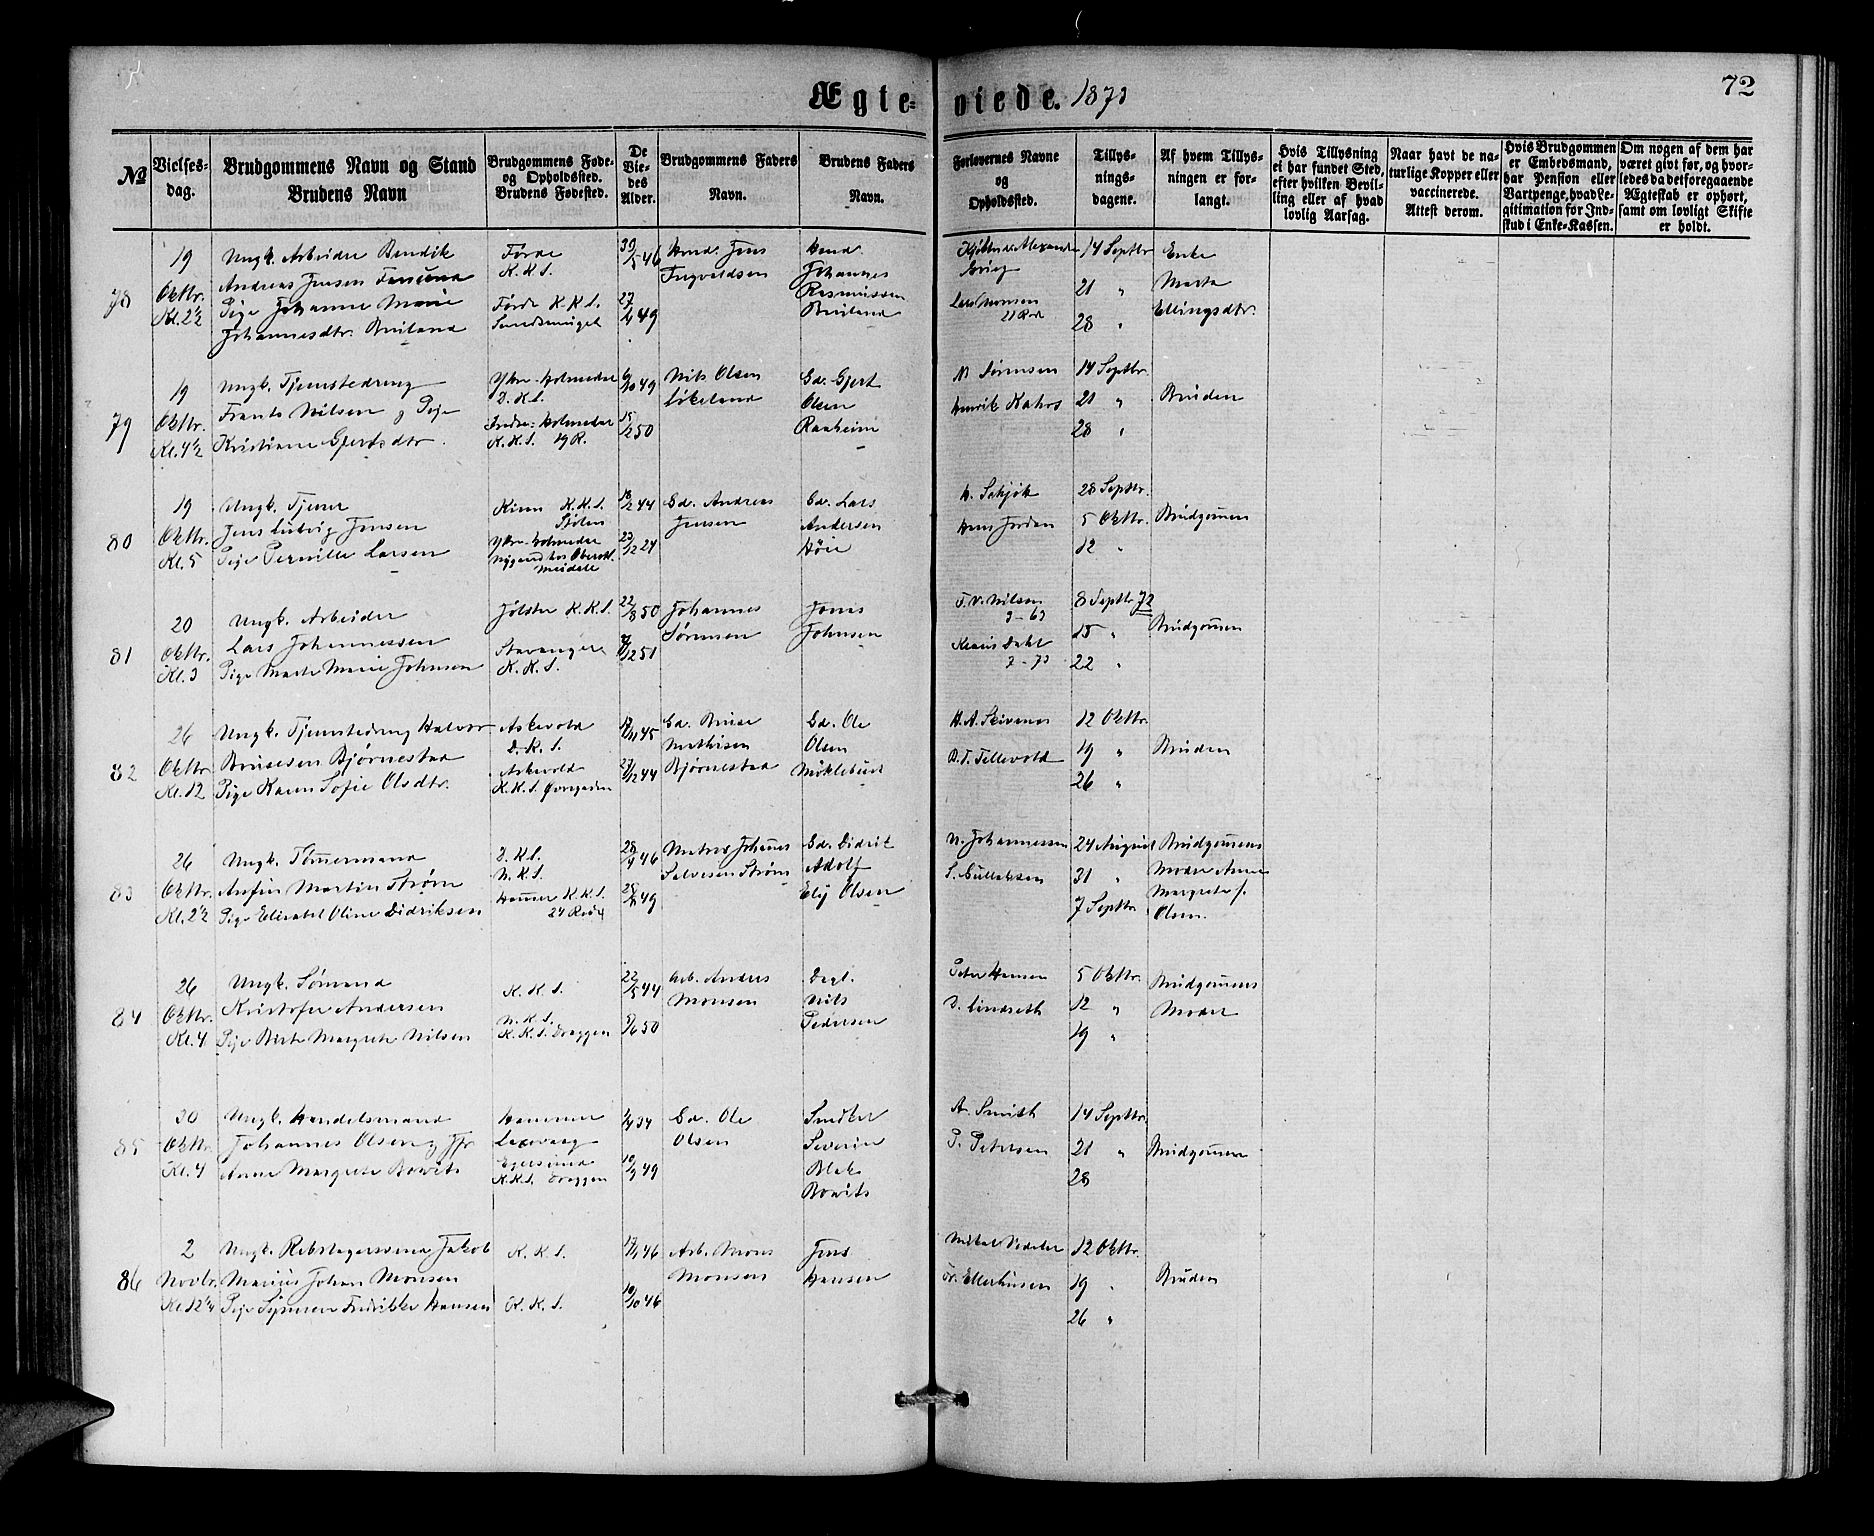 Ægte-viede. 1873
72
No
Vielses-dag.
Brudgommens Navn og Stand
Brudens Navn
Brudgommens Føde- og Opholdssted.
Brudens Fødested.
De Vie-des Alder.
Brudgommens Faders Navn.
Brudens Faders Navn.
Forlovernes Navne og Opholdssted.
Tillys-nings-dagene.
Af hvem Tillys-ningen er for-langt.
Hvis Tillysning ei har fundet Sted, efter hvilken Bevil-ling eller af hvad lovlig Aarsag.
Naar havt de na-turlige Kopper eller vaccinerede. Attest derom.
Hvis Brudgommen er Embedsmand, har Pension eller Vartpenge, hvad Le-gitimation for Ind-skud i Enke-Kassen.
Om nogen af dem har været givt før, og hvor-ledes da det foregaaende Ægteskab er ophørt, samt om lovligt Skifte er holdt.
78
19 Oktbr. Kl. 2½
Ungk. Arbeider Bendik
Andreas Jensen
Pige Johanne Marie
Johannesdtr. Bruland
Førde
K.K.S.
Førde K.K.S.
30/5 46
27/4 49
Jens
Ingvaldsen
Johannes
Rasmussen
Bruland
Alexander
Grieg
Lars Monsen
21 Rode
14 Septbr.
21 "
28 "
Enke
Marta
Ellingsdtr.
79
19 Oktbr. Kl. 4½
Ungk. Tjenestedreng
Frants Nilsen og Pige
Kristiane Gjertsdtr.
Ytre-Holmedal
D.K.S.
Indre-Holmedal
K.K.S. 19 R.
6/10 49
15/2 50
Nils Olsen
Løkeland
Gd. Gjert
Olsen
Raaheim
M Sørensen
Henrik Kahrs
14 Septbr.
21 "
28 "
Bruden
80
19 Oktbr. Kl. 5
Ungk. Tjener
Jens Ludvig Jensen
Pige Pernille Larsen
Kinn K.K.S.
Ytre-Holmedal
18/2 44
23/12 24
Gd. Andreas
Jensen
Gd. Lars
Andersen
Høie
Schjøtt
Hans Jordan
28 Septbr.
5 Oktbr.
12 "
Brudgomen
81
20 Oktbr. Kl. 3
Ungk. Arbeider
Lars Johannessen
Pige Marte Marie Johnsen
Jølster K.K.S.
Stavanger
K.K.S.
22/8 50
12 51
Johannes
Sørensen
Jonas
Johnsen
T. V. Nilsen
3-63
Klaus Dahl
7-73
8 Septbr. 72
15 "
22 "
Brudgomen
82
26 Oktbr. Kl. 12
Ungk. Tjenestedreng Halvor
Brusesen Bjørnestad
Pige Karen Sofie Olsdtr.
Askevold
D.K.S.
Askevold
K.K.S. Øvregaden
11 45
23/12 44
Gd. Bruse
Mathisen
Bjørnestad
Gd. Ole
Olsen
Miklebust
H. A. Skivenes
B. T. Tellevold
12 Oktbr.
19 "
26 "
Bruden
83
26 Oktbr. Kl. 2½
Ungk. Tømermand
Anfin Martin Strøm
Pige Elisabet Oline Didriksen
D.K.S.
N.K.S.
Hammer K.K.S.
24 Rode
28/9 46
49
Matros Johannes
Salvesen Strøm
Gd. Didrik
Adolf
Elij Olsen
N. Johannessen
S. Gullaksen
24 August
31 "
7 Septbr.
Brudgomens
Moder Anne
Margrete f.
Olsen.
84
26 Oktbr. Kl. 4
Ungk. Sømand
Kristofer Andersen
Pige Berte Margrete Nilsen
K.K.S.
N.K.S.
K.K.S. Dræggen
22/5 44
6 50
Arb. Anders
Monsen
Dagl.
Nils
Pedersen
Peter Hansen
D. Lindseth
5 Oktbr.
12 "
19 "
Brudgomens
Moder
85
30 Oktbr. Kl. 4
Ungk. Handelsmand
Johannes Olsen og Jfr.
Anne Margrete Bowitz
Hammer
Laxevaag
Egersund
K.K.S. Dræggen
34
10/9 49
Gd. Ole
Olsen
Snedker
Severin
Blek
Bowitz
A. Smith
P. Petersen
14 Septbr.
21 "
28
Brudgomen
86
2 Novbr. Kl. 12¼
Ungk. Rebslagersvend Jakob
Marius Johan Monsen
Pige Synneve Fredrikke Hansen
K.K.S.
K.K.S.
46
10/10 46
Arb. Mons
Monsen
Jens
Hansen
Mikal Vedeler
Fr. Ellerhusen
12 Oktbr.
19 "
26 "
Bruden